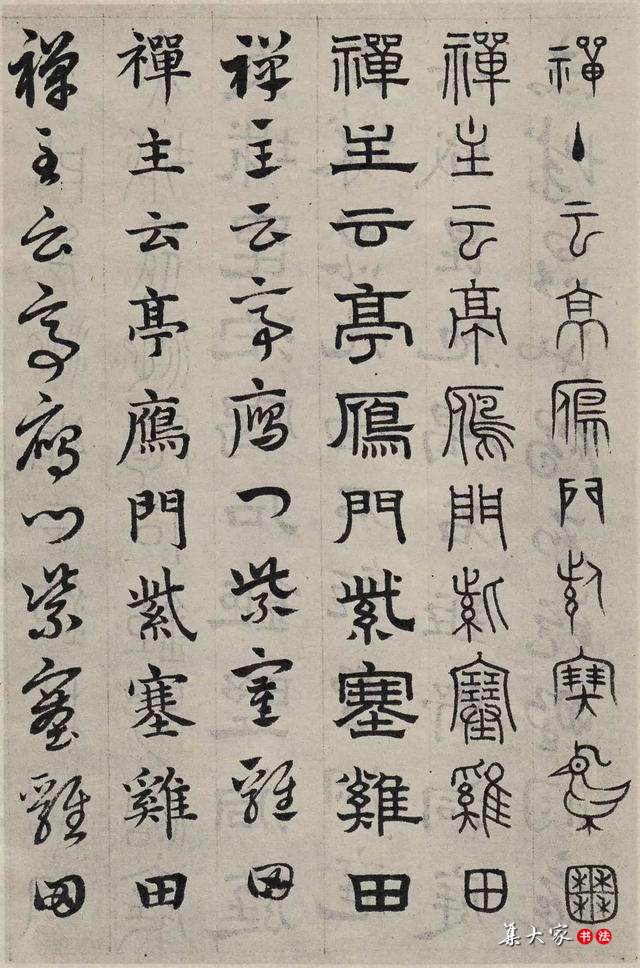 禪主云亭鴈門紫塞雞田
禪主云亭鴈門紫塞雞田
禪主云亭鴈門紫塞雞田
禪主云亭鴈門紫塞雞田
禪主云亭鴈門紫塞雞田
禪主云亭鴈門紫塞雞田
集大家书法